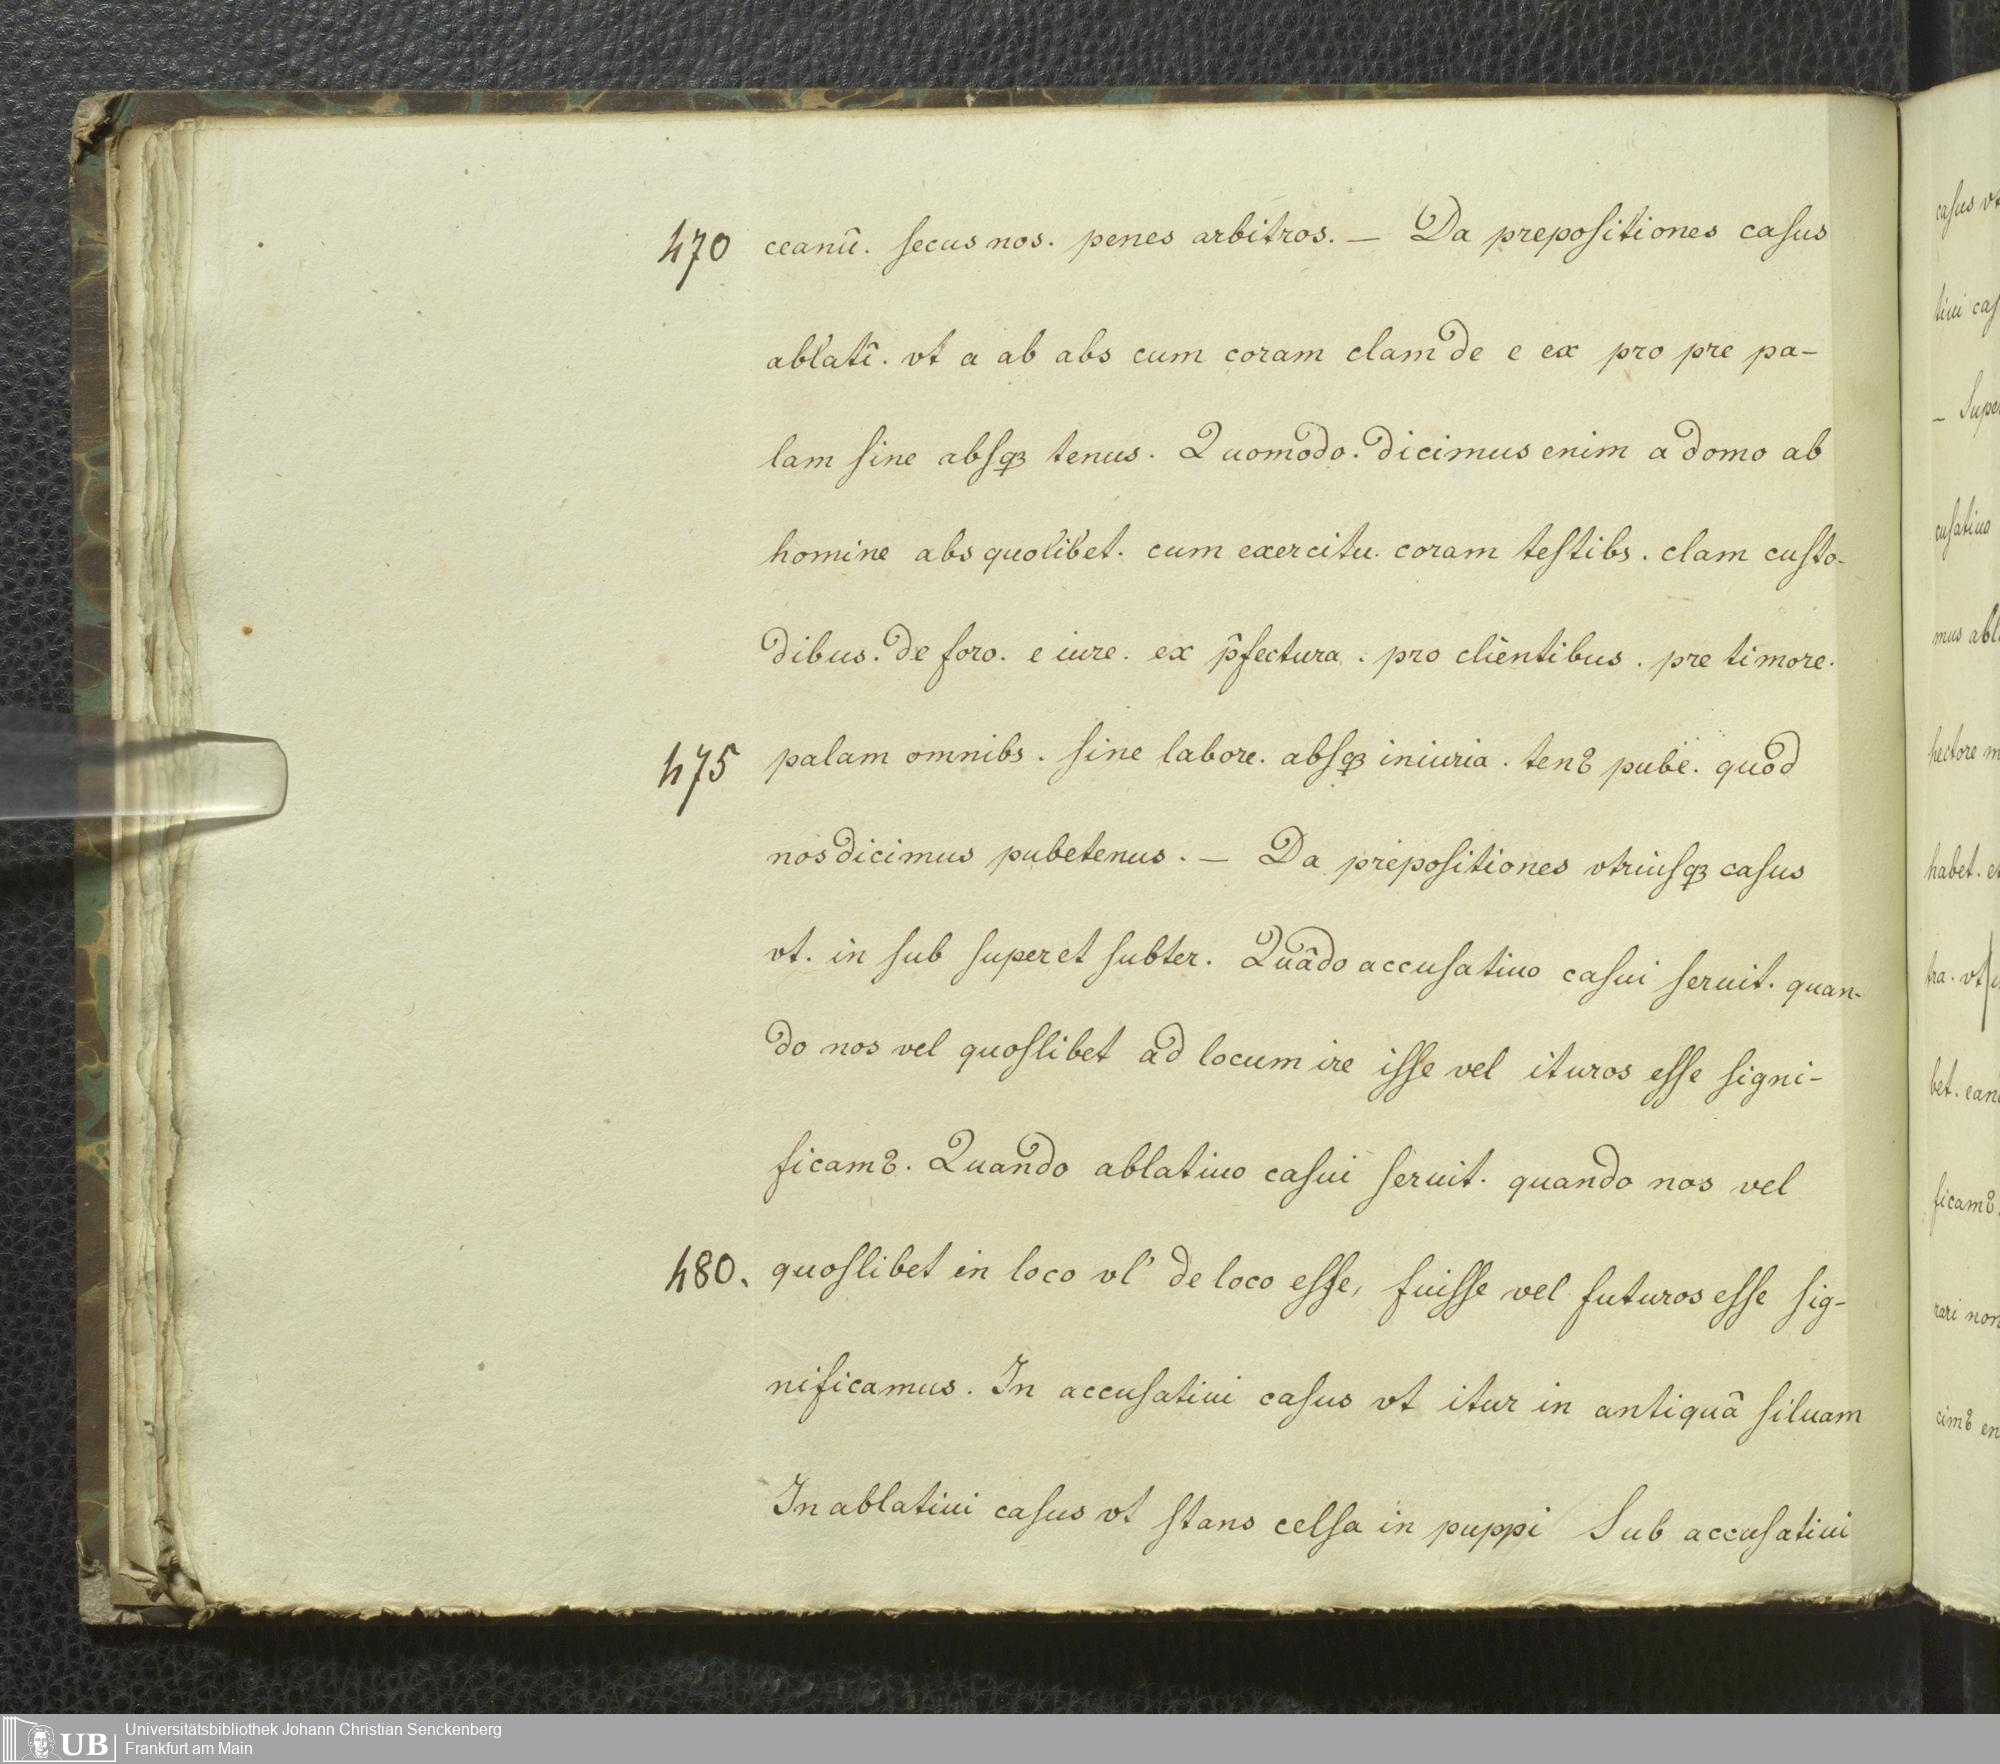 470 ceanū. ſecus nos. penes arbitros. — Da prepoſitiones caſus
ablatī. vt a ab abs cum coram clam de e ex pro pre pa-
lam ſine abſqꝫ tenus. Quomodo. dicimus enim a domo ab
homine abs quolibet. cum exercitu. coram teſtibs. clam cuſto-
dibus. de foro. e iure. ex p̄fectura. pro clientibus. pre timore.
475 palam omnibs. ſine labore. abſqꝫ iniuria. tenꝰ pube. quod
nos dicimus pubetenus. — Da prepoſitiones vtriuſqꝫ caſus
vt. in ſub ſuper et ſubter. Quādo accuſatiuo caſui ſeruit. quan-
do nos vel quoſlibet ad locum ire iſſe vel ituros eſſe ſigni-
ficamꝰ. Quando ablatiuo caſui ſeruit. quando nos vel
480. quoſlibet in loco vl' de loco eſſe, fuiſſe vel futuros eſſe ſig-
nificamus. In accuſatiui caſus vt itur in antiquā ſiluam
In ablatiui caſus vt ſtans celſa in puppi Sub accuſatiui
caſus vt
tiui caſ
— Supe
cuſatiuo
mus abl
hectore m
habet. et
tra. vt
bet. ean
ficamꝰ.
rari non
cimꝰ en
UB Universitätsbibliothek Johann Christian Senckenberg
Frankfurt am Main